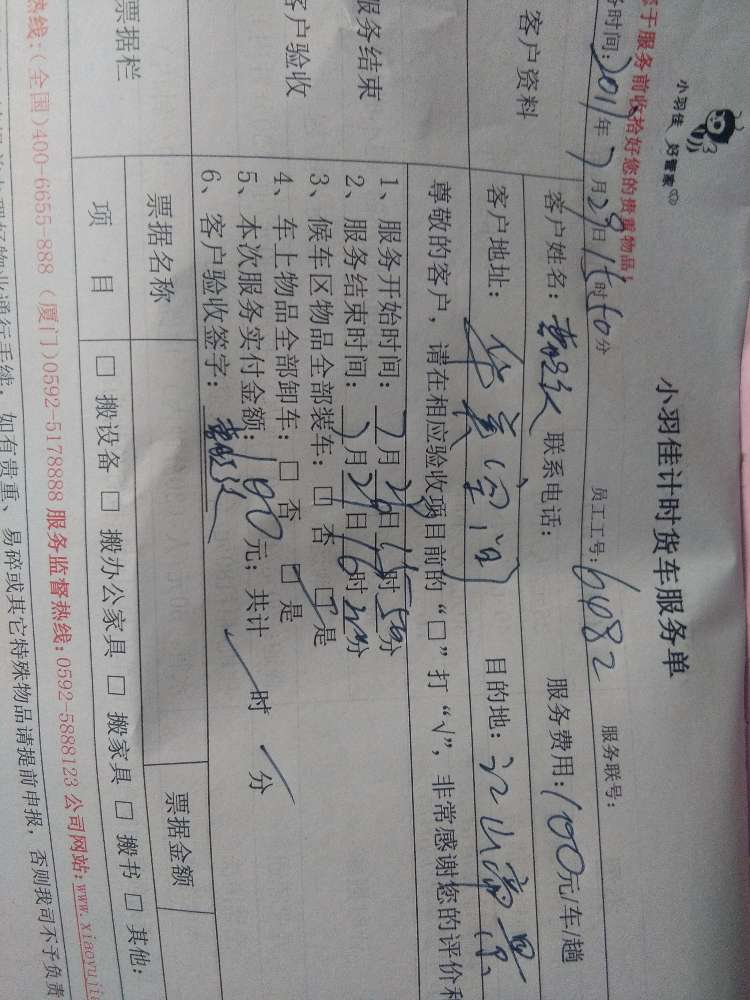 小羽佳 好管家
小羽佳计时货车服务单
于服务前收拾好您的贵重物品!
时间: 2011年7月29日15时50分 员工工号: 6482 服务联号:
客户资料
客户姓名: 联系电话: 服务费用: 100元/车/趟
客户地址: 华美空间 目的地: 江山帝景
尊敬的客户, 请在相应验收项目前的“□”打“√”, 非常感谢您的评价和
服务结束
客户验收
1、服务开始时间: 7月29日15时50分
2、服务结束时间: 7月29日16时20分
3、候车区物品全部装车: □ 否 □ 是
4、车上物品全部卸车: □ 否 □ 是
5、本次服务实付金额: 100元; 共计 时 分
6、客户验收签字:
票据栏
票据名称 票据金额
项 目 □ 搬设备 □ 搬办公家具 □ 搬家具 □ 搬书 □ 其他:
热线: (全国)400-6655-888 (厦门)0592-5178888 服务监督热线: 0592-5888123 公司网站: www.xiaoyujia
理好物业通行手续, 如有贵重、易碎或其它特殊物品请提前申报, 否则我司不予负责